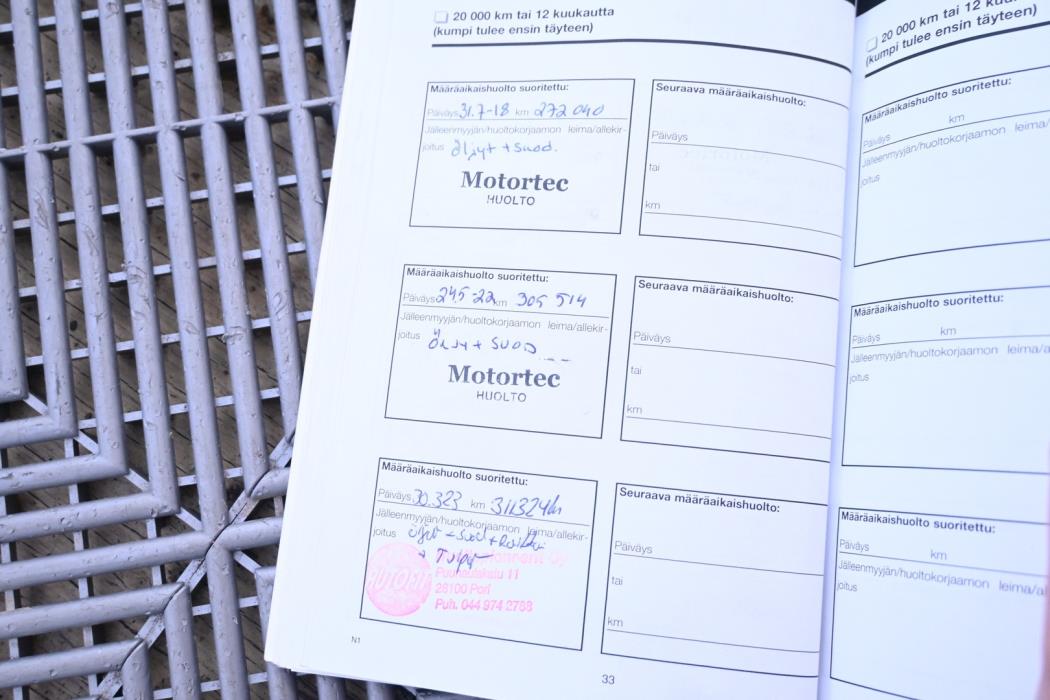 20 000 km tai 12 kuukautta
(kumpi tulee ensin täyteen)
Määräaikaishuolto suoritettu:
Päiväys 31.7-18 km 272 040
Jälleenmyyjän/huoltokorjaamon leima/allekir-
joitus öljyt + suod.
Motortec
HUOLTO
Seuraava määräaikaishuolto:
Päiväys
tai
km
Määräaikaishuolto suoritettu:
Päiväys 24.5-22 km 305 514
Jälleenmyyjän/huoltokorjaamon leima/allekir-
joitus Öljy + SUOD
Motortec
HUOLTO
Seuraava määräaikaishuolto:
Päiväys
tai
km
Määräaikaishuolto suoritettu:
Päiväys 30.323 km 311324
Jälleenmyyjän/huoltokorjaamon leima/allekir-
joitus öljyt + suod +
+ Tulpat
AUTOFIT
Puuhaulakatu 11
28100 Pori
Puh. 044 974 2788
Seuraava määräaikaishuolto:
Päiväys
tai
km
N1
33
20 000 km tai 12
(kumpi tulee ensin täyteen)
Määräaikaishuolto suoritettu:
Päiväys km
Jälleenmyyjän/huoltokorjaamon leima/
joitus
Määräaikaishuolto suoritettu:
Päiväys km
Jälleenmyyjän/huoltokorjaamon leima/a
joitus
Määräaikaishuolto suoritettu:
Päiväys km
Jälleenmyyjän/huoltokorjaamon leima/al
joitus